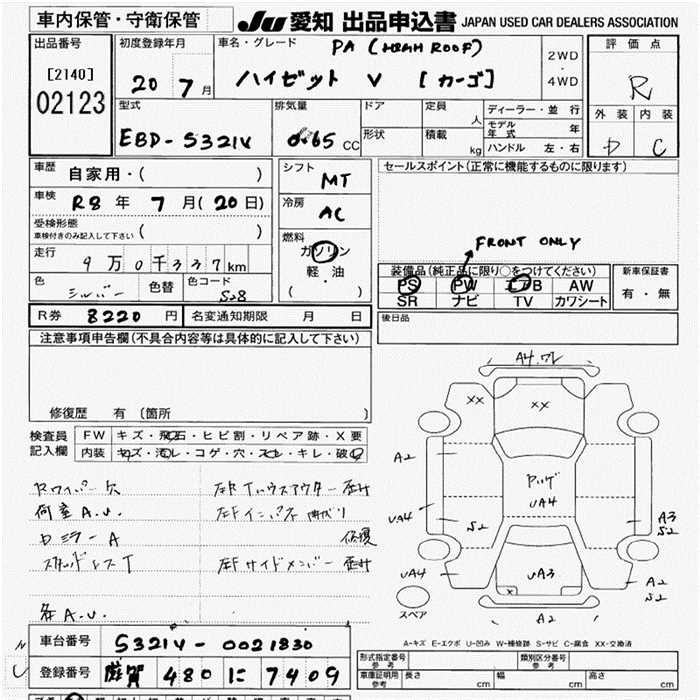 車内保管・守衛保管
JU 愛知 出品申込書 JAPAN USED CAR DEALERS ASSOCIATION
出品番号
[2140]
02123
初度登録年月
20 7月
車名・グレード PA (HIGH ROOF)
ハイゼット V [カーゴ]
2WD
・
4WD
評価点
R
外装 内装
D C
型式
EBD-S321V
排気量
0.65 CC
ドア
形状
定員
人
積載
kg
ディーラー・並行
モデル年式 年
ハンドル 左・右
車歴 自家用・( )
車検 R8年 7月(20日)
受検形態
車検付きのみ記入して下さい ( )
走行 9万0千337km
色 シルバー 色替 色コード S28
シフト MT
冷房 AC
燃料
ガソリン
軽・油
( )
セールスポイント(正常に機能するものに限ります)
FRONT ONLY
装備品(純正品に限り○をつけてください)
PS PW エアB AW
SR ナビ TV カワシート
新車保証書
有・無
R券 8220円 名変通知期限 月 日
後日品
注意事項申告欄(不具合内容等は具体的に記入して下さい)
修復歴 有 〔箇所 〕
検査員記入欄
FW キズ・飛石・ヒビ割・リペア跡・X要
内装 キズ・汚レ・コゲ・穴・スレ・キレ・破レ
荷室A.U.
ミラーA
スタッドレスT
各A.U.
左F サイドメンバー
修復
A4.ワレ
XX
XX
A2
UA4
UA4
S2
S2
UA4
UA3
A3
S2
A2
S2
A2
スペア
A-キズ E-エクボ U-凹み W-補修跡 S-サビ C-腐食 XX-交換済
車台番号 S321V-0021830
登録番号 滋賀 480 に 7409
形式指定番号
参考
類別区分番号
参考
車庫証明用
参考
長さ cm 幅 cm 高さ cm